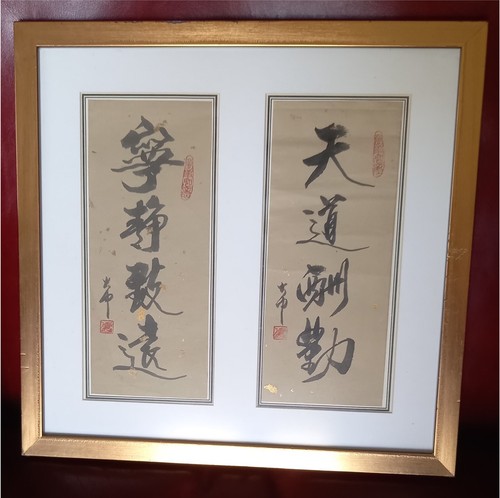 天道酬勤
寧静致遠